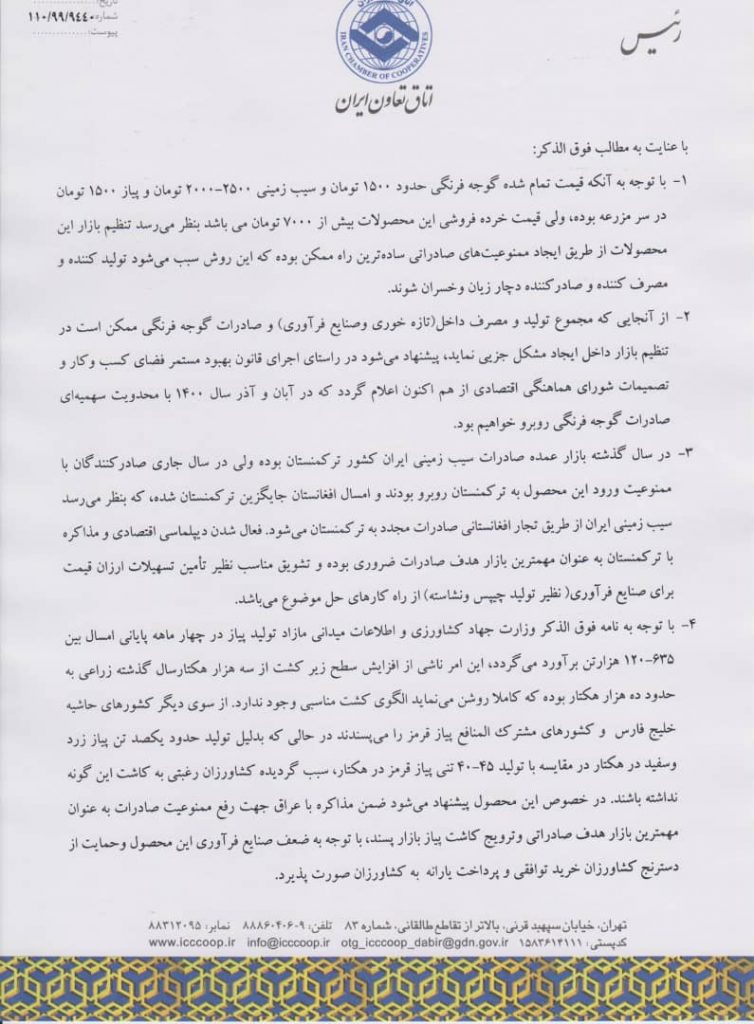 تاریخ:
شماره: ۱۱۰/۹۹/۹۴۴۰
پیوست:
رئیس
IRAN CHAMBER OF COOPERATIVES
اتاق تعاون ایران
با عنایت به مطالب فوق الذکر:
۱- با توجه به آنکه قیمت تمام شده گوجه فرنگی حدود ۱۵۰۰ تومان و سیب زمینی ۲۵۰۰-۲۰۰۰ تومان و پیاز ۱۵۰۰ تومان
در سر مزرعه بوده، ولی قیمت خرده فروشی این محصولات بیش از ۷۰۰۰ تومان می باشد بنظر می‌رسد تنظیم بازار این
محصولات از طریق ایجاد ممنوعیت‌های صادراتی ساده‌ترین راه ممکن بوده که این روش سبب می‌شود تولید کننده و
مصرف کننده و صادرکننده دچار زیان وخسران شوند.
۲- از آنجایی که مجموع تولید و مصرف داخل(تازه خوری وصنایع فرآوری) و صادرات گوجه فرنگی ممکن است در
تنظیم بازار داخل ایجاد مشکل جزیی نماید، پیشنهاد می‌شود در راستای اجرای قانون بهبود مستمر فضای کسب وکار و
تصمیمات شورای هماهنگی اقتصادی از هم اکنون اعلام گردد که در آبان و آذر سال ۱۴۰۰ با محدویت سهمیه‌ای
صادرات گوجه فرنگی روبرو خواهیم بود.
۳- در سال گذشته بازار عمده صادرات سیب زمینی ایران کشور ترکمنستان بوده ولی در سال جاری صادرکنندگان با
ممنوعیت ورود این محصول به ترکمنستان روبرو بودند و امسال افغانستان جایگزین ترکمنستان شده، که بنظر می‌رسد
سیب زمینی ایران از طریق تجار افغانستانی صادرات مجدد به ترکمنستان می‌شود. فعال شدن دیپلماسی اقتصادی و مذاکره
با ترکمنستان به عنوان مهمترین بازار هدف صادرات ضروری بوده و تشویق مناسب نظیر تأمین تسهیلات ارزان قیمت
برای صنایع فرآوری( نظیر تولید چیپس ونشاسته) از راه کارهای حل موضوع می‌باشد.
۴- با توجه به نامه فوق الذکر وزارت جهاد کشاورزی و اطلاعات میدانی مازاد تولید پیاز در چهار ماهه پایانی امسال بین
۶۳۵-۱۲۰ هزارتن برآورد می‌گردد، این امر ناشی از افزایش سطح زیر کشت از سه هزار هکتارسال گذشته زراعی به
حدود ده هزار هکتار بوده که کاملا روشن می‌نماید الگوی کشت مناسبی وجود ندارد. از سوی دیگر کشورهای حاشیه
خلیج فارس و کشورهای مشترک المنافع پیاز قرمز را می‌پسندند در حالی که بدلیل تولید حدود یکصد تن پیاز زرد
وسفید در هکتار در مقایسه با تولید ۴۵-۴۰ تنی پیاز قرمز در هکتار، سبب گردیده کشاورزان رغبتی به کاشت این گونه
نداشته باشند. در خصوص این محصول پیشنهاد می‌شود ضمن مذاکره با عراق جهت رفع ممنوعیت صادرات به عنوان
مهمترین بازار هدف صادراتی وترویج کاشت پیاز بازار پسند، با توجه به ضعف صنایع فرآوری این محصول وحمایت از
دسترنج کشاورزان خرید توافقی و پرداخت یارانه به کشاورزان صورت پذیرد.
تهران، خیابان سپهبد قرنی، بالاتر از تقاطع طالقانی، شماره ۸۳ تلفن: ۹-۸۸۸۰۶۰۴۰ نمابر: ۸۸۳۱۲۰۹۵
کدپستی: ۱۵۸۳۶۱۴۱۱۱ www.icccoop.ir info@icccoop.ir otg_icccoop_dabir@gdn.gov.ir